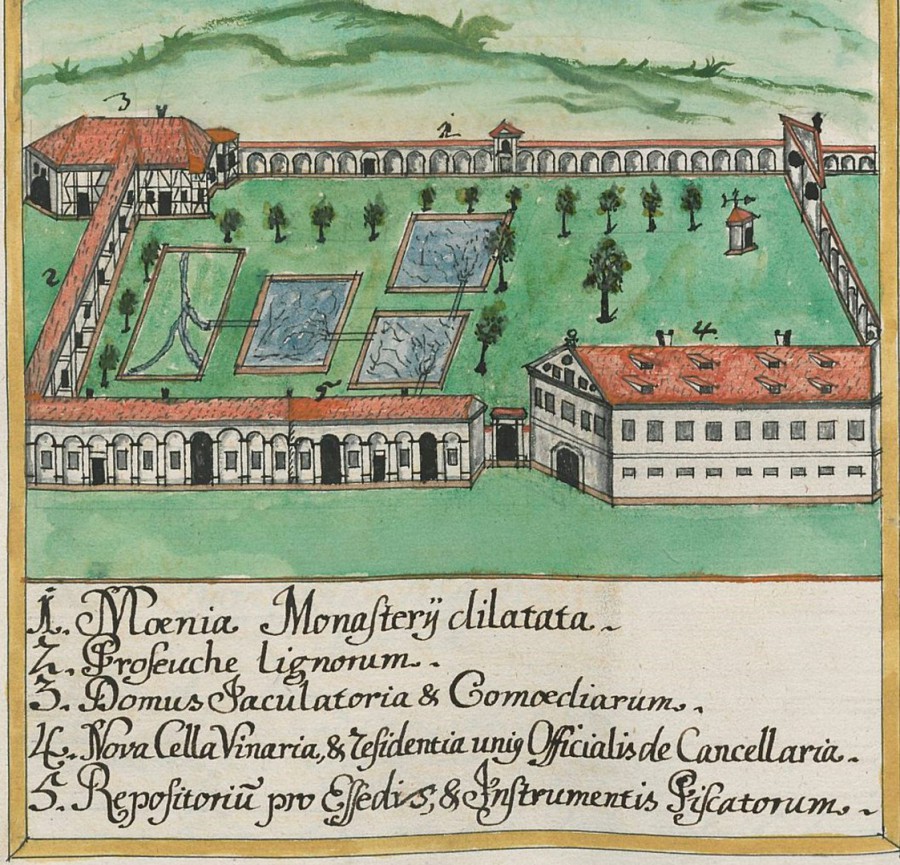 3
1
2
4.
5
1. Mœnia Monaſterÿ dilatata.
2. Proſeuche lignorum.
3. Domus Jaculatoria & Comœdiarum.
4. Nova Cella Vinaria, & reſidentia uniꝰ Officialis de Cancellaria.
5. Repoſitoriū pro Eſſedis, & Inſtrumentis Piſcatorum.